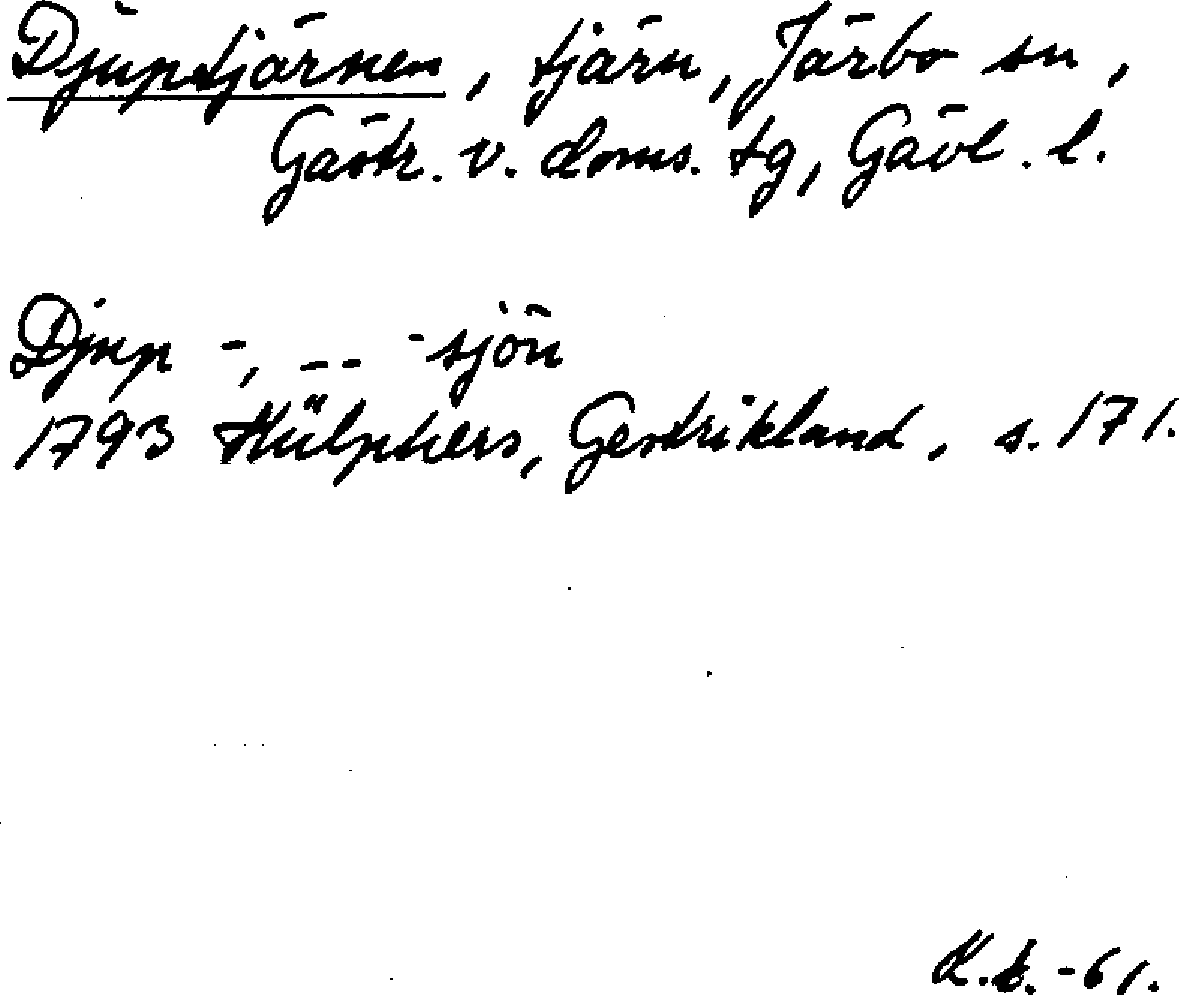 Djuptjärnen, tjärn, Järbo sn,
Gästr. v. doms. tg, Gävl. l.
Djup -, -- -sjön
1793 Hülphers, Gestrikland, s. 171.
K.b. -61.